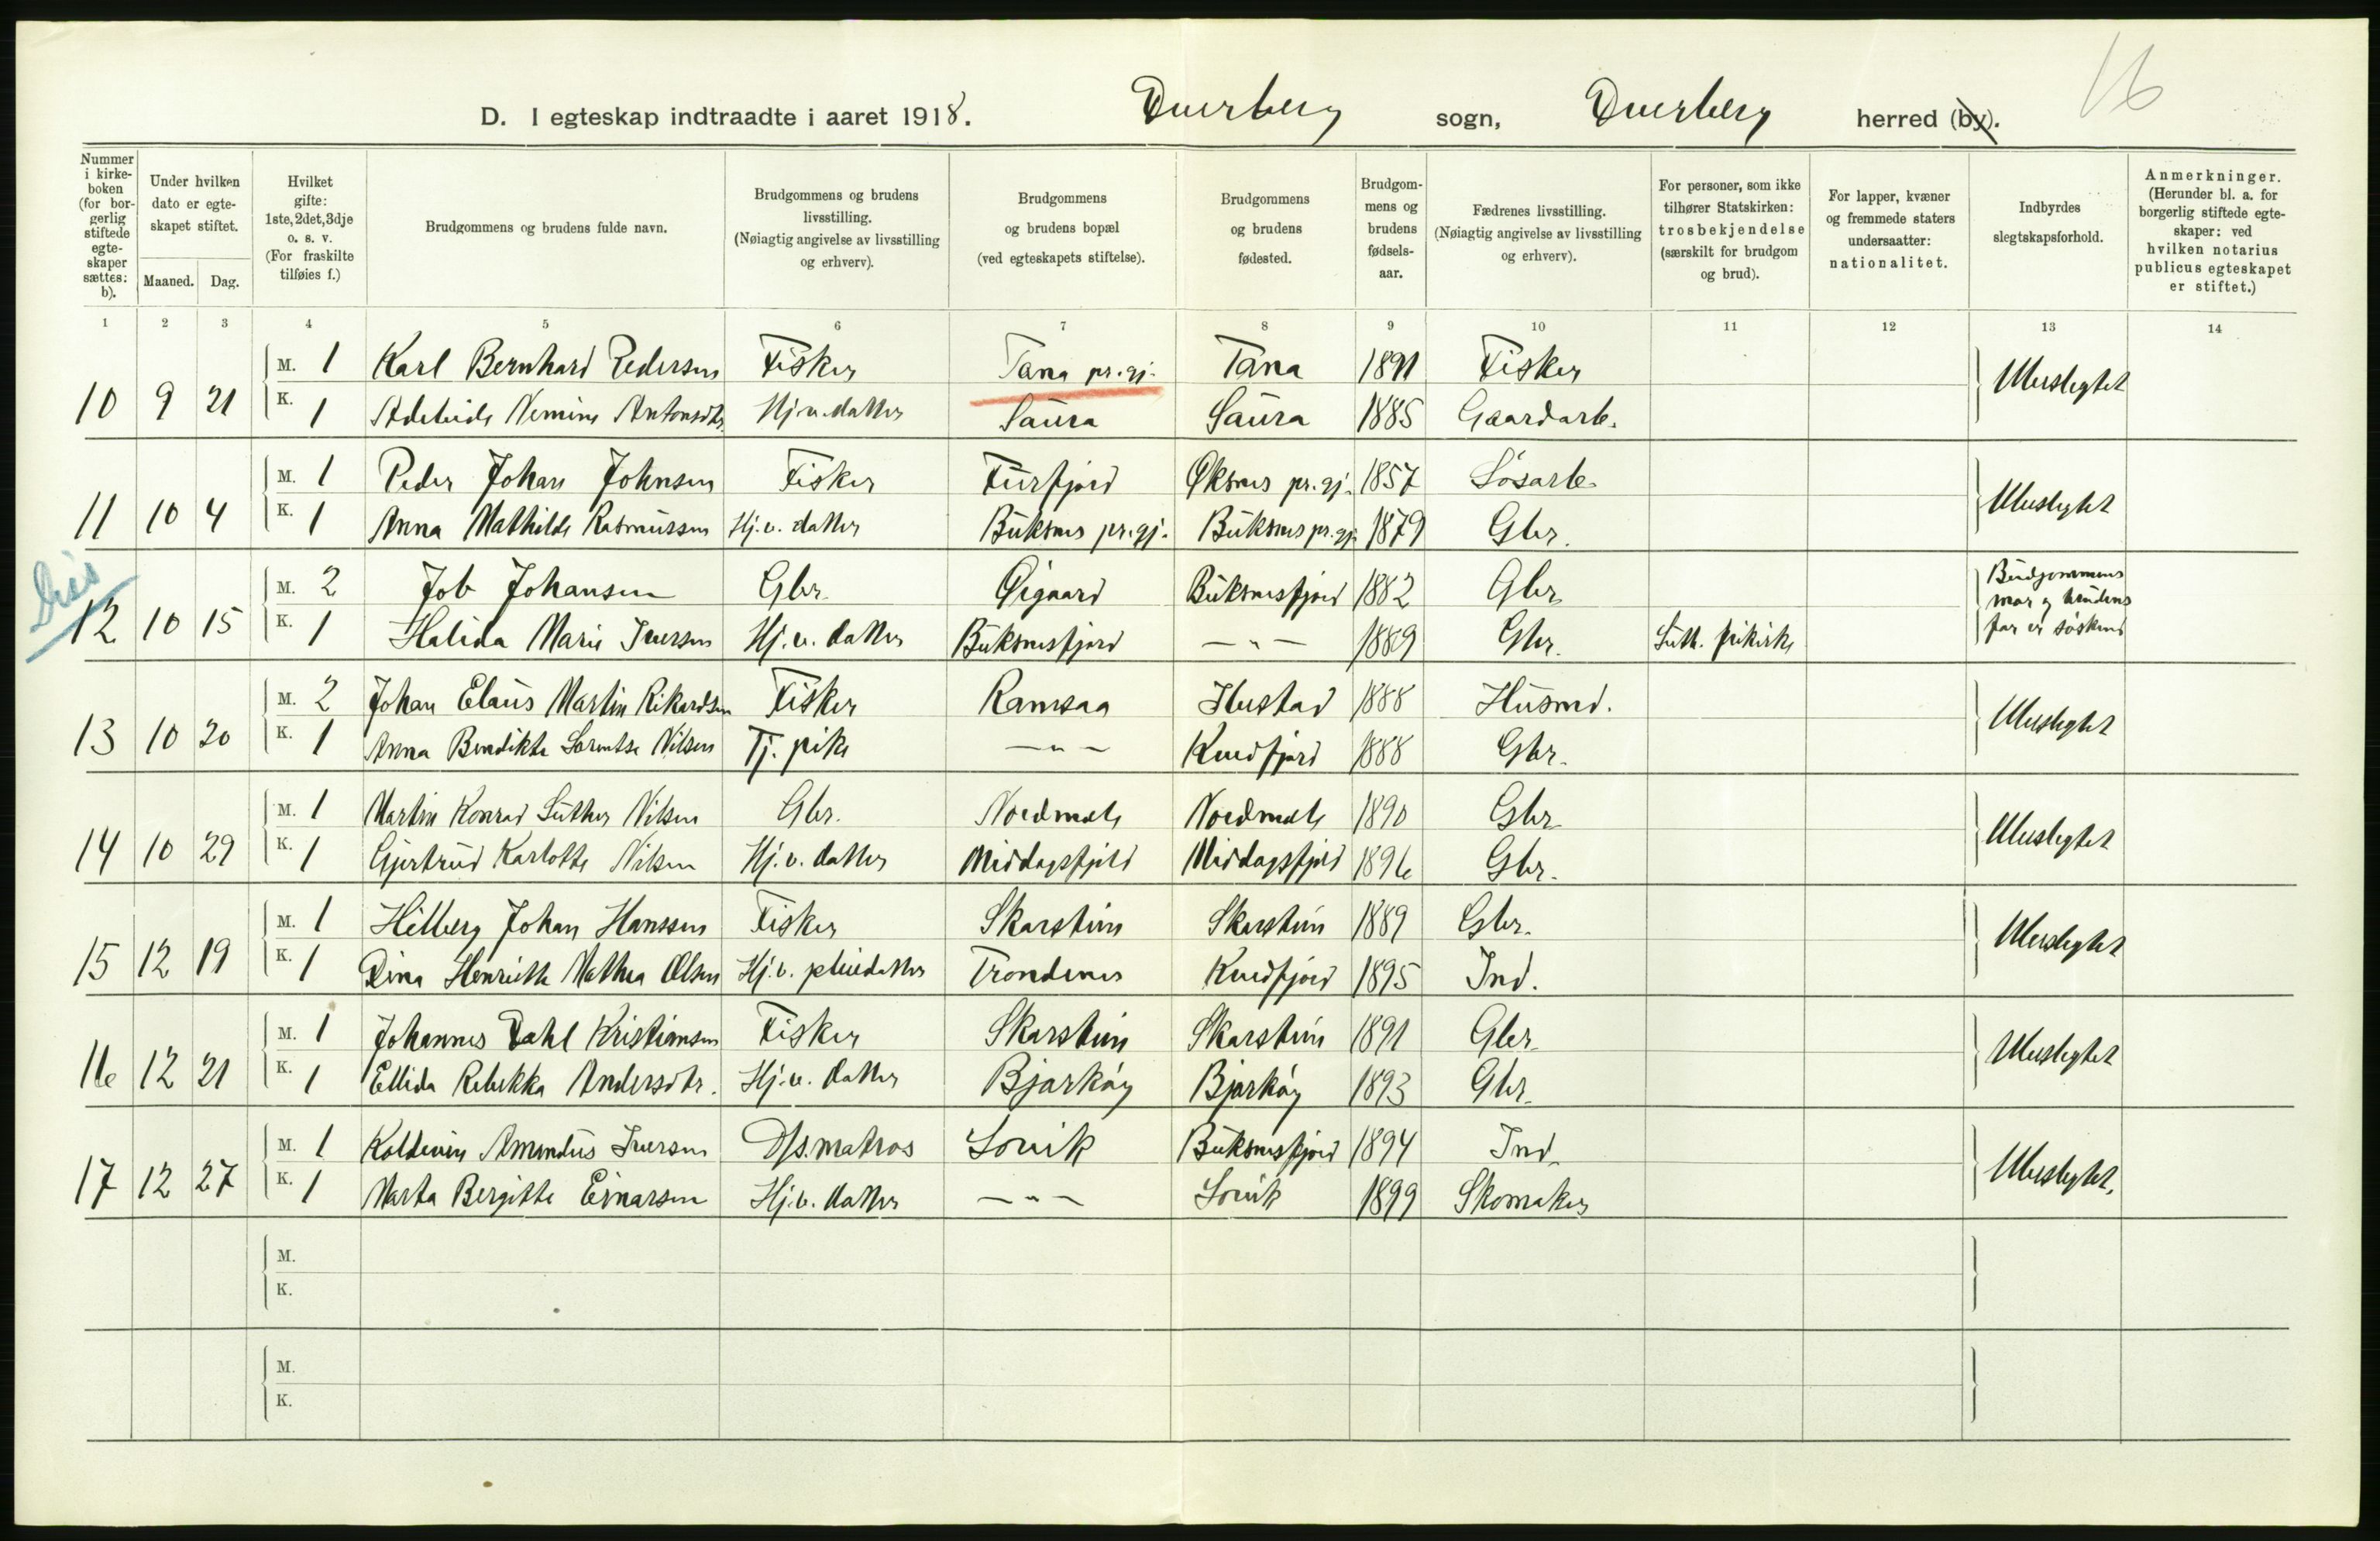 16
D. I egteskap indtraadte i aaret 1918. Dverberg sogn, Dverberg herred (by).
Nummer i kirkeboken (for borgerlig stiftede egteskaper sættes: b).
Under hvilken dato er egteskapet stiftet.
Maaned. Dag.
Hvilket gifte: 1ste, 2det, 3dje o. s. v. (For fraskilte tilføies f.)
Brudgommens og brudens fulde navn.
Brudgommens og brudens livsstilling. (Nøiagtig angivelse av livsstilling og erhverv).
Brudgommens og brudens bopæl (ved egteskapets stiftelse).
Brudgommens og brudens fødested.
Brudgommens og brudens fødselsaar.
Fædrenes livsstilling. (Nøiagtig angivelse av livsstilling og erhverv).
For personer, som ikke tilhører Statskirken: trosbekjendelse (særskilt for brudgom og brud).
For lapper, kvæner og fremmede staters undersaatter: nationalitet.
Indbyrdes slegtskapsforhold.
Anmerkninger. (Herunder bl. a. for borgerlig stiftede egteskaper: ved hvilken notarius publicus egteskapet er stiftet.)
1 2 3 4 5 6 7 8 9 10 11 12 13 14
M. 1 Karl Bernhard Pedersen Fisker Tana pr. gj. Tana 1891 Fisker
10 9 21 Ubeslegtet
K. 1 Adeleide Nemine Antonsdtr. Hj. v. datter Saura Saura 1885 Gaardarb.
M. 1 Peder Johan Johnsen Fisker Fiirfjord Øksnes pr. gj. 1857 Løsarb.
11 10 4 Ubeslegtet
K. 1 Anna Mathilde Rasmussen Hj. v. datter Buksnes pr. gj. Buksnes pr. gj. 1879 Gbr.
M. 2 Job Johansen Gbr. Øigaard Buksnesfjord 1882 Gbr.
12 10 15 Brudgommens mor og brudens far er søskend
K. 1 Halida Marie Iversen Hj. v. datter Buksnesfjord — " — 1889 Gbr. Luth. frikirke
M. 2 Johan Elaus Martin Rikardsen Fisker Ramsaa Hustad 1888 Husmd.
13 10 20 Ubeslegtet
K. 1 Anna Bendikte Lorentse Nilsen Tj. pike — " — Kvedfjord 1888 Gbr.
M. 1 Martin Konrad Luther Nilsen Gbr. Nordmele Nordmele 1890 Gbr.
14 10 29 Ubeslegtet
K. 1 Gjertrud Karlotte Nilsen Hj. v. datter Middagsfjeld Middagsfjeld 1896 Gbr.
M. 1 Hilberg Johan Hanssen Fisker Skarstein Skarstein 1889 Gbr.
15 12 19 Ubeslegtet
K. 1 Dina Henriette Mathea Olsen Hj. v. pleiedatter Trondenes Kvedfjord 1895 Ind.
M. 1 Johannes Dahl Kristiansen Fisker Skarstein Skarstein 1891 Gbr.
16 12 21 Ubeslegtet
K. 1 Ellida Rebekka Andersdtr. Hj. v. datter Bjarkøy Bjarkøy 1893 Gbr.
M. 1 Koldevin Amandus Iversen D/s. matros Lovik Buksnesfjord 1894 Ind.
17 12 27 Ubeslegtet.
K. 1 Marta Bergitte Einarsen Hj. v. datter — " — Lovik 1899 Skomaker
M.
K.
M.
K.